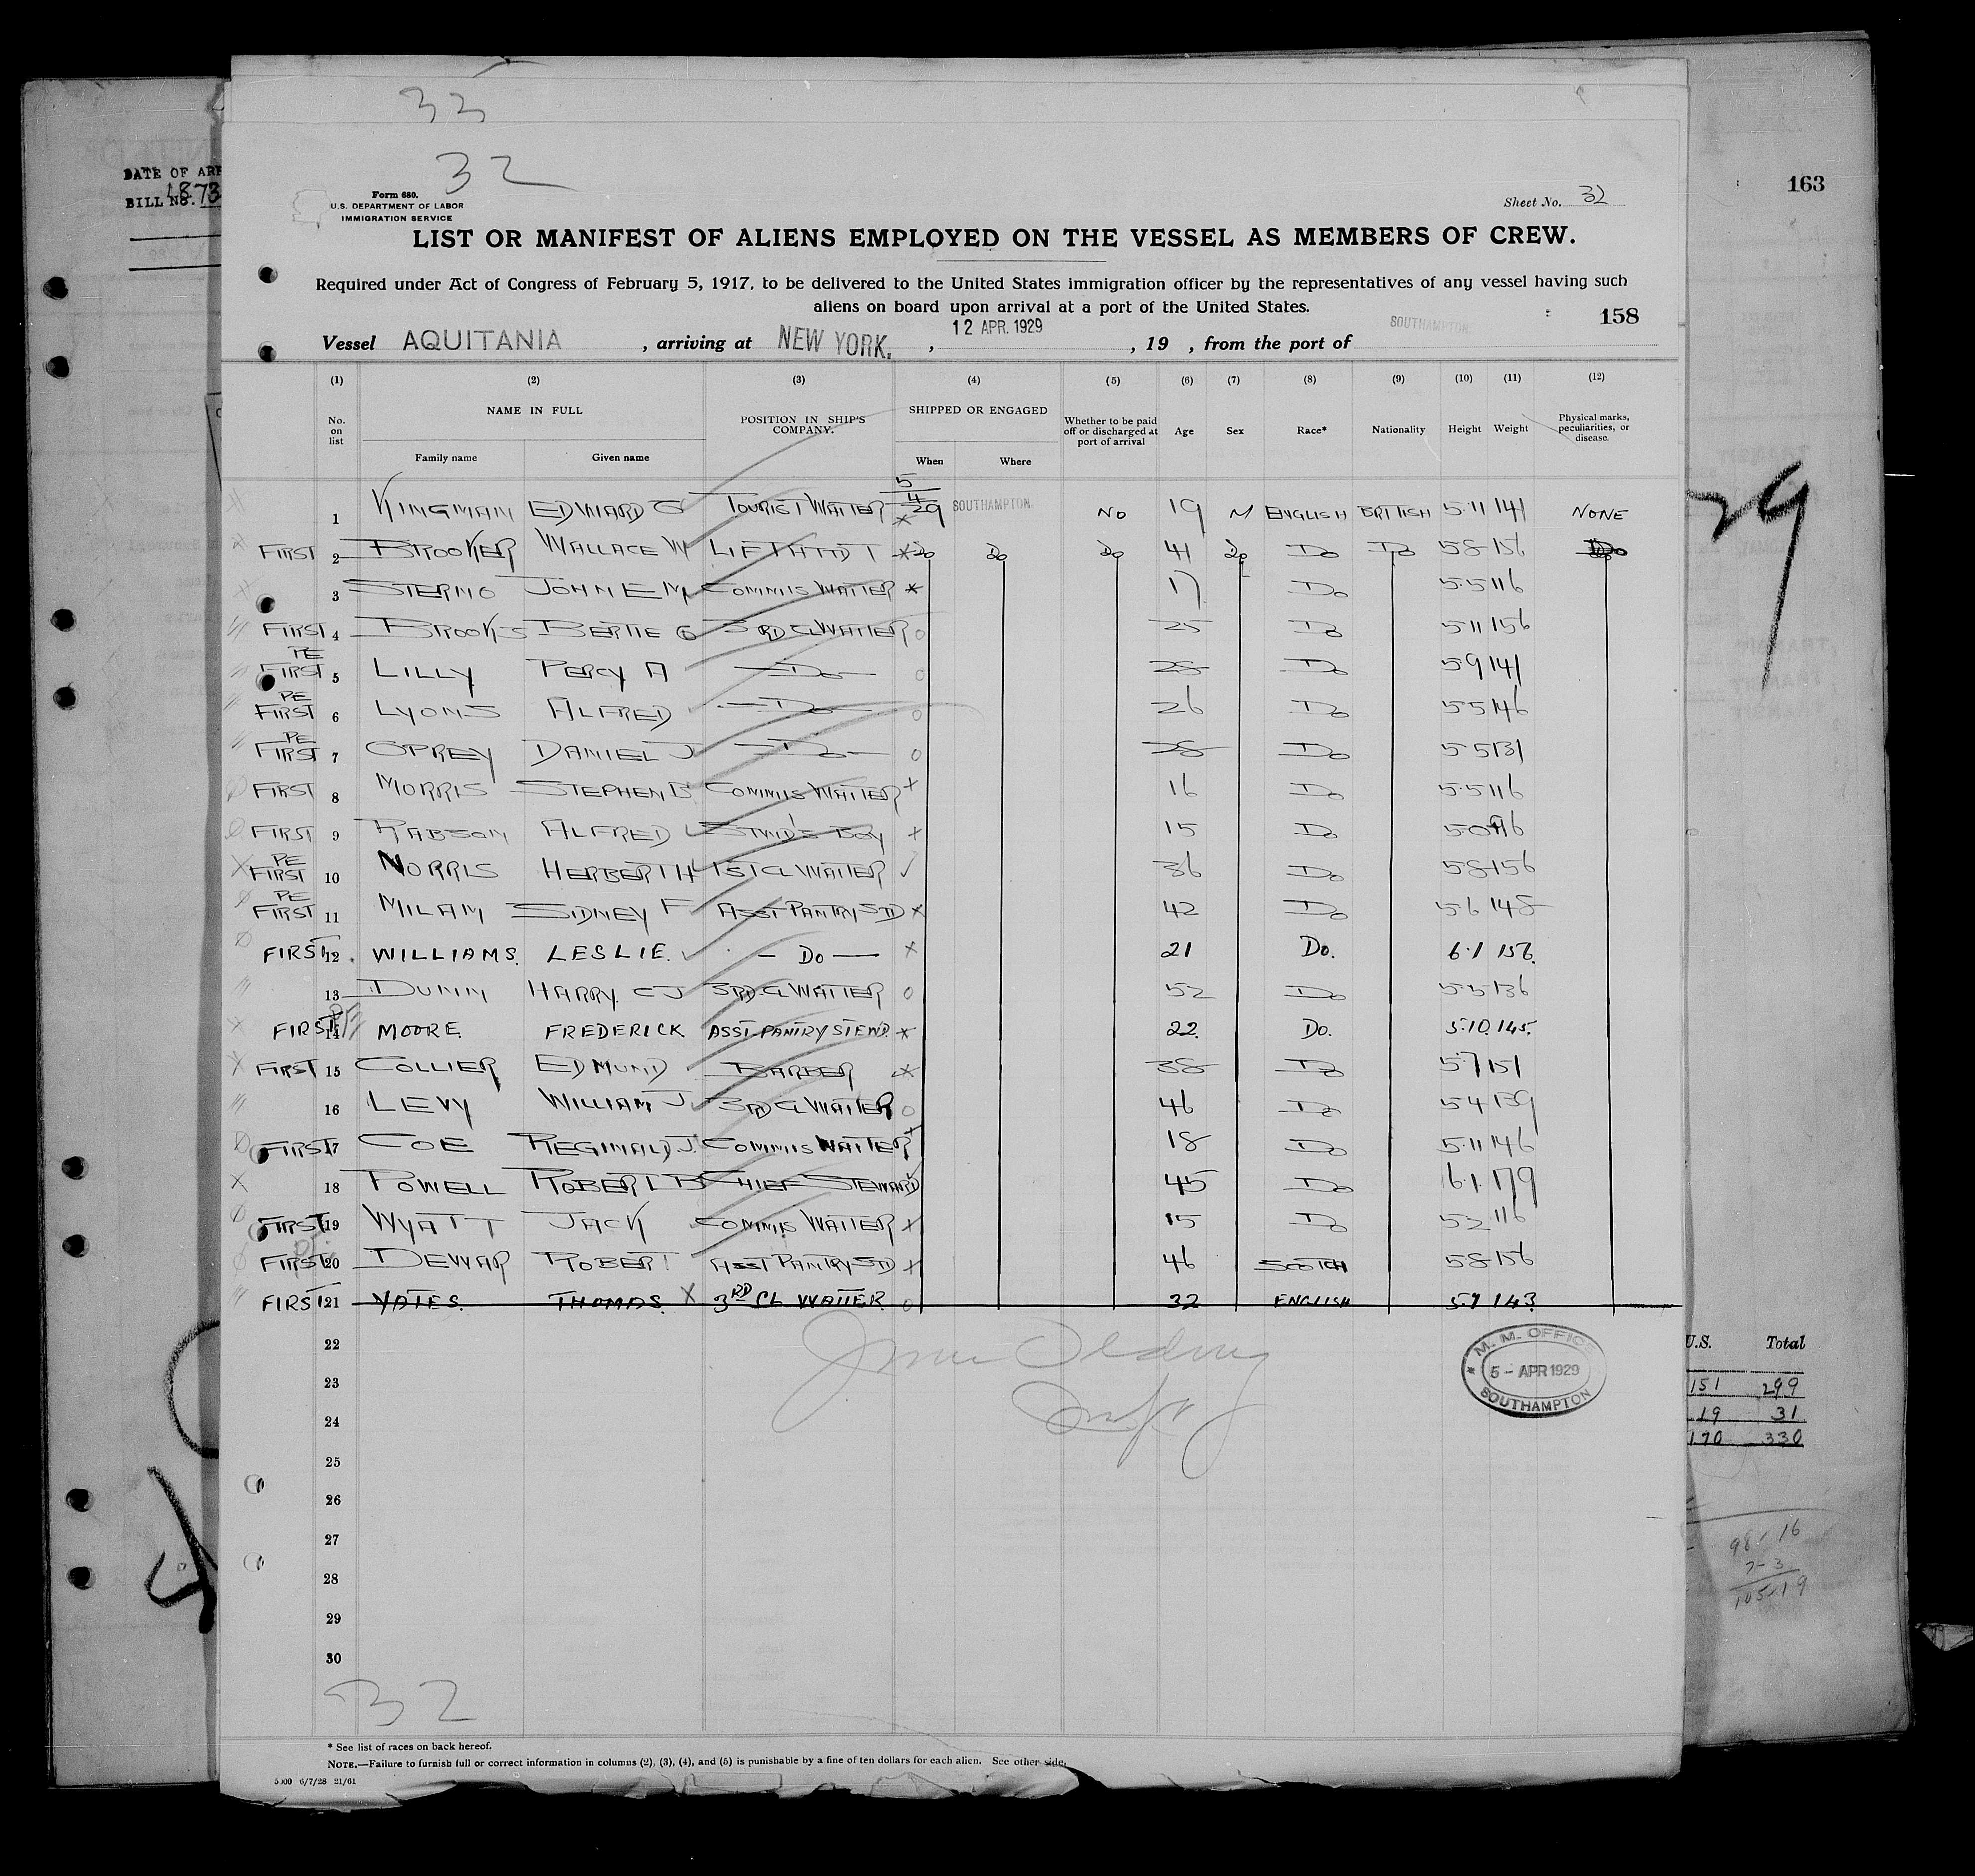 33
32
DATE OF ARR
BILL NO. 1873
163
Form 680.
U.S. DEPARTMENT OF LABOR
IMMIGRATION SERVICE
Sheet No. 32
LIST OR MANIFEST OF ALIENS EMPLOYED ON THE VESSEL AS MEMBERS OF CREW.
Required under Act of Congress of February 5, 1917, to be delivered to the United States immigration officer by the representatives of any vessel having such
aliens on board upon arrival at a port of the United States.
158
Vessel AQUITANIA, arriving at NEW YORK., 12 APR. 1929, 19 , from the port of SOUTHAMPTON.
(1) (2) (3) (4) (5) (6) (7) (8) (9) (10) (11) (12)
No. on list NAME IN FULL POSITION IN SHIP'S COMPANY. SHIPPED OR ENGAGED Whether to be paid off or discharged at port of arrival Age Sex Race* Nationality Height Weight Physical marks, peculiarities, or disease.
Family name Given name When Where
1 KINGMAN EDWARD G TOURIST WAITER 5/4/29 SOUTHAMPTON. NO 19 M ENGLISH BRITISH 5·11 141 NONE
FIRST 2 BROOKER WALLACE W LIFT ATTDT Do Do Do 41 Do Do Do 5 8 156 Do
3 JOHN E M COMMIS WAITER 17 Do 5·5 116
FIRST 4 BROOKS BERTIE G 3RD CL WAITER 25 Do 5 11 156
PE FIRST 5 LILLY PERCY A Do 28 Do 5 9 141
PE FIRST 6 LYONS ALFRED Do 26 Do 5 5 146
PE FIRST 7 OPREY DANIEL J Do 28 Do 5 5 131
FIRST 8 MORRIS STEPHEN B COMMIS WAITER 16 Do 5·5 116
FIRST 9 RABSON ALFRED STWD'S BOY 15 Do 5·0 96
PE FIRST 10 NORRIS HERBERT H 1ST CL WAITER 36 Do 5 8 156
PE FIRST 11 MILAM SIDNEY F ASST PANTRY STD 42 Do 5·6 148
FIRST 12 WILLIAMS. LESLIE. — Do — 21 Do. 6·1 156.
13 DUNN HARRY. C J 3RD. CL WAITER 52 Do 5 5 136
FIRST 14 MOORE. FREDERICK ASST PANTRY STEWD. 22. Do. 5·10. 145.
FIRST 15 COLLIER EDMUND BARBER 38 Do 5·7 151
16 LEVY WILLIAM J 3RD CL WAITER 46 Do 5 4 139
FIRST 17 COE REGINALD. J. COMMIS WAITER 18 Do 5·11 146
18 POWELL ROBERT B CHIEF STEWARD 45 Do 6·1 179
FIRST 19 WYATT JACK COMMIS WAITER 15 Do 5 2 116
FIRST 20 DEWAR ROBERT ASST PANTRY STD 46 SCOTCH 5 8 156
FIRST 21 YATES. THOMAS. X 3RD CL WAITER 32 ENGLISH 5 7 143
22
23
24
25
26
27
28
29
30
M. M. OFFICE
5 - APR 1929
SOUTHAMPTON
U.S. Total
151 299
19 31
170 330
98 16
7-3
105 19
29
32
* See list of races on back hereof.
NOTE.—Failure to furnish full or correct information in columns (2), (3), (4), and (5) is punishable by a fine of ten dollars for each alien. See other side.
5000 6/7/28 21/61